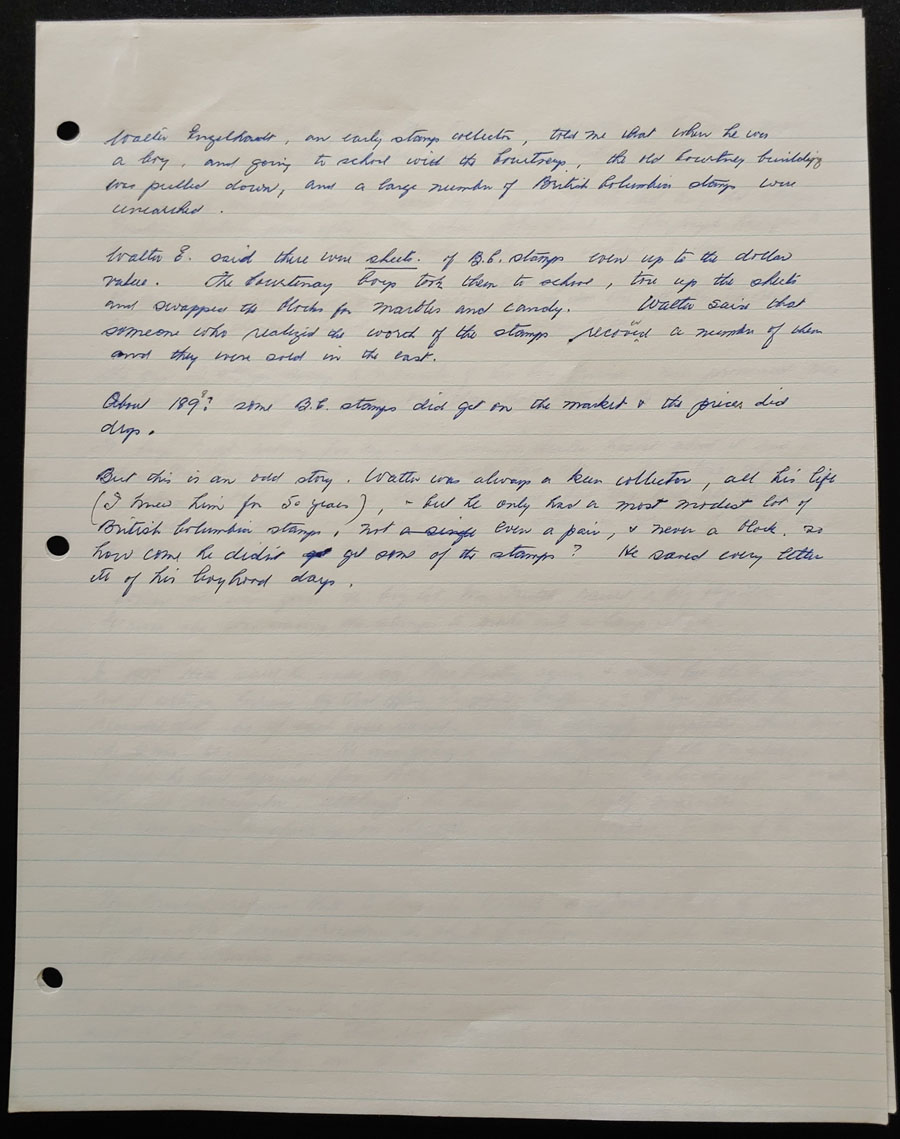 Walter Engelhardt, an early stamp collector, told me that when he was
a boy, and going to school with the Courtneys, the old Courtney building
was pulled down, and a large number of British Columbia stamps were
unearthed.
Walter E. said there were sheets. of B.C. stamps even up to the dollar
value. The Courtenay boys took them to school, tore up the sheets
and swapped the blocks for marbles and candy. Walter said that
someone who realized the worth of the stamps a number of them
and they were sold in the east.
About 189? some B.C. stamps did get on the market & the prices did
drop.
But this is an odd story. Walter was always a keen collector, all his life
(I knew him for 50 years), - but he only had a most modest lot of
British Columbia stamps, not a single even a pair, & never a block. so
how come he didn't get get some of the stamps? He saved every letter
etc of his boyhood days.